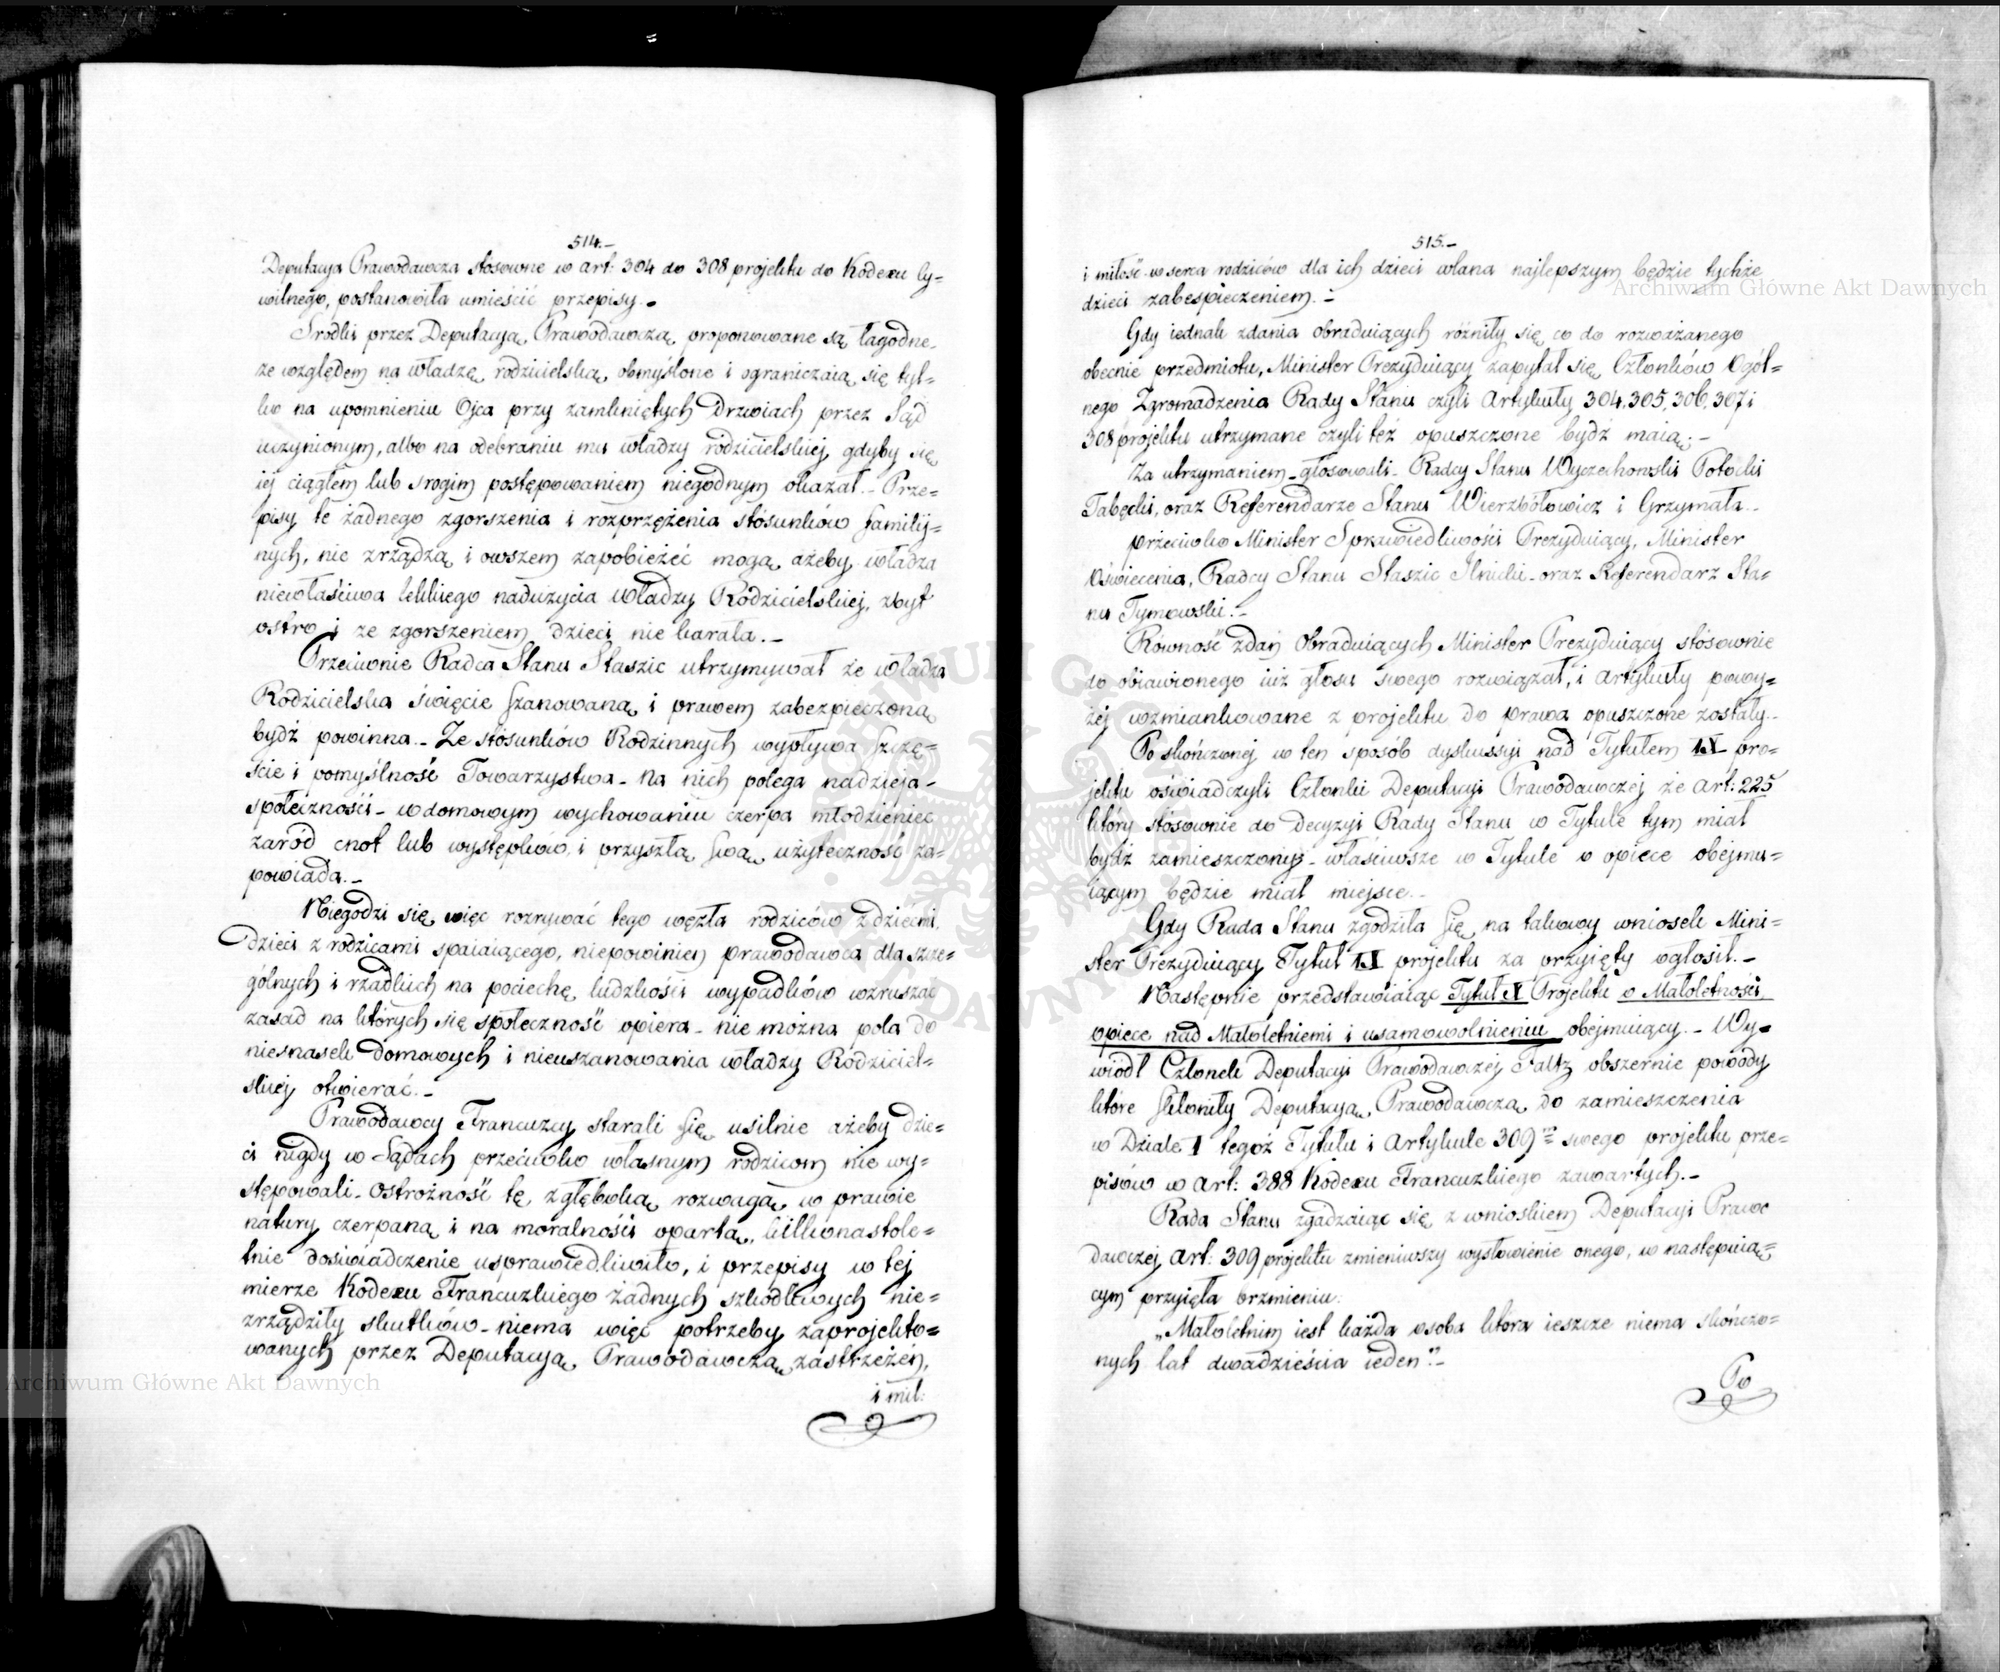 514.-
Deputacya Prawodawcza stósowne w art: 304 do 308 projektu do Kodexu Cy=
wilnego, postanowiła umieścić przepisy.-
Srodki przez Deputacyą Prawodawczą proponowane są łagodne.
ze względem na władzę rodzicielską obmyślone i ograniczaią się tyl=
ko na upomnieniu Ojca przy zamkniętych Drzwiach przez Sąd
uczynionym, albo na odebraniu mu władzy rodzicielskiej gdyby się
iej ciągłem lub srogim postępowaniem niegodnym okazał.- Prze=
pisy te żadnego zgorszenia i rozprzężenia stósunków familij=
nych, nie zrządzą i owszem zapobieżeć mogą ażeby władza
niewłaściwa lekkiego nadużycia Władzy Rodzicielskiej, zbyt
ostro i ze zgorszeniem dzieci nie karała.-
Przeciwnie Radca Stanu Staszic utrzymywał że Władza
Rodzicielska święcie szanowaną i prawem zabezpieczoną
bydź powinna.- Ze stósunków Rodzinnych wypływa szczę=
ście i pomyślność Towarzystwa- na nich polega nadzieja-
społeczności- w domowym wychowaniu czerpa młodzieniec
zaród cnot lub występków, i przyszłą swą użyteczność za=
powiada.-
Niegodzi się więc rozrywać tego węzła rodziców z dziećmi,
dzieci z rodzicami spaiaiącego, niepowinien prawodawca dla szcze=
gólnych i rzadkich na pociechę ludzkości wypadków wzruszać
zasad na których się społeczność opiera- nie można pola do
niesnasek domowych i nieuszanowania władzy Rodziciel=
skiej otwierać.-
Prawodawcy Francuzcy starali się usilnie ażeby dzie=
ci nigdy w Sądach przeciwko własnym rodzicom nie wy=
stępowali- Ostrożność tę, z głęboką rozwagą w prawie
natury czerpaną i na moralności opartą, kilkonastole=
tnie doswiadczenie usprawiedliwiło, i przepisy w tej
mierze Kodexu Francuzkiego żadnych szkodliwych nie=
zrządziły skutków- niema więc potrzeby zaprojekto=
wanych przez Deputacyą Prawodawczą zastrzeżeń,
i mił:
515.-
i miłość w serca rodziców dla ich dzieci wlana najlepszym będzie tychże
dzieci zabespieczeniem.-
Gdy iednak zdania obraduiących różniły się co do rozważanego
obecnie przedmiotu, Minister Prezyduiący zapytał się Członków Ogól=
nego Zgromadzenia Rady Stanu czyli Artykuły 304, 305, 306, 307 i
308 projektu utrzymane czyli też opuszczone bydź maią:-
Za utrzymaniem głosowali- Radcy Stanu Wyczechowski Potocki
Tabęcki, oraz Referendarze Stanu Wierzbołowicz i Grzymała.-
przeciwko Minister Sprawiedliwości Prezyduiący, Minister
Oświecenia, Radcy Stanu Staszic Ilnicki- oraz Referendarz Sta=
nu Tymowski.-
Równość zdań Obraduiących Minister Prezyduiący stósownie
do obiawionego iuż głosu swego rozwiązał, i Artykuły powy=
żej wzmiankowane z projektu do prawa opuszczone zostały.-
Po skończonej w ten sposób dyskussyi nad Tytułem IX pro=
jektu oświadczyli Członki Deputacyi Prawodawczej że Art: 225
który stósownie do Decyzyi Rady Stanu w Tytule tym miał
bydź zamieszczony,- właściwsze w Tytule o opiece obejmu=
iącym będzie miał miejsce.-
Gdy Rada Stanu zgodziła się na takowy wniosek Mini=
ster Prezyduiący Tytuł IX projektu za przyięty ogłosił.-
Następnie przedstawiaiąc Tytuł X Projektu o Małoletności,
opiece nad Małoletniemi i usamowolnieniu obejmuiący.- Wy=
wiódł Członek Deputacyi Prawodawczej Faltz obszernie powody
które skłoniły Deputacyą Prawodawczą do zamieszczenia
w Dziale I tegoż Tytułu i Artykule 309 swego projektu prze=
pisów w Art: 388 Kodexu Francuzkiego zawartych.-
Rada Stanu zgadzaiąc się z wnioskiem Deputacyi Prawo
dawczej Art: 309 projektu zmieniwszy wysłowienie onego, w następuią=
cym przyięła brzmieniu:
„Małoletnim iest każda osoba która ieszcze niema skończo=
nych lat dwadzieścia ieden".-
Po
Archiwum Główne Akt Dawnych
Archiwum Główne Akt Dawnych